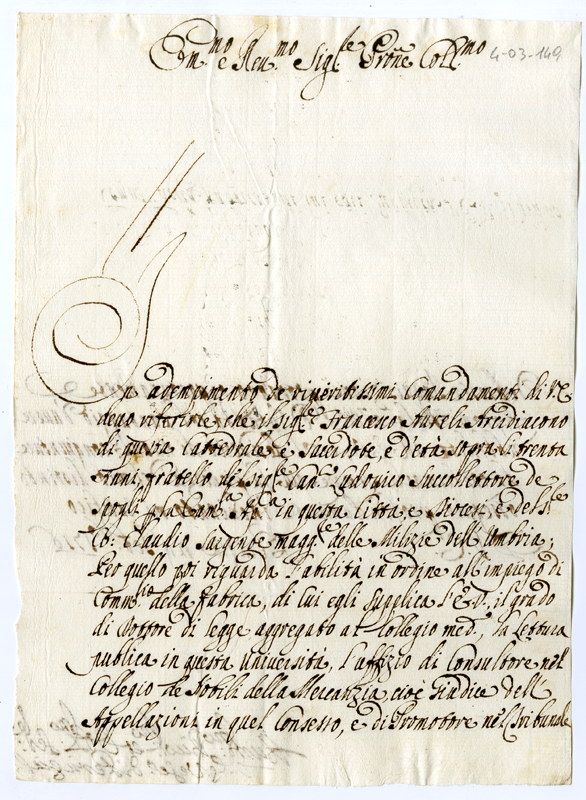 Ill.mo e Rev.mo Sig.re Prõne Coll.mo
4-03-149
In adempimento de riveritissimi Comandamenti di V.E.
devo riferirle che il Sig.r Francesco Aureli Arcidiacono
di questa Cattedrale è Sacerdote, e d'età sopra li trenta
Anni, fratello del Sig.r Can.co Ludovico Succollettore de
Spogli, e la Cam.ra Ap.ca in questa Città, e Diocesi, e del S.re
Claudio Sargente magg.re delle Milizie dell'Umbria;
Per quello poi riguarda l'abilità in ordine all'impiego di
Comm.rio della Fabrica, di cui egli supplica l'E.V., il grado
di Dottore di legge aggregato al Collegio med.o, la Lettura
publica in questa Università, l'uffizio di Consultore nel
Collegio de Nobili della Mercanzia, cioè Giudice dell'
Appellazioni in quel Consesso, e di Promotore nel Tribunale